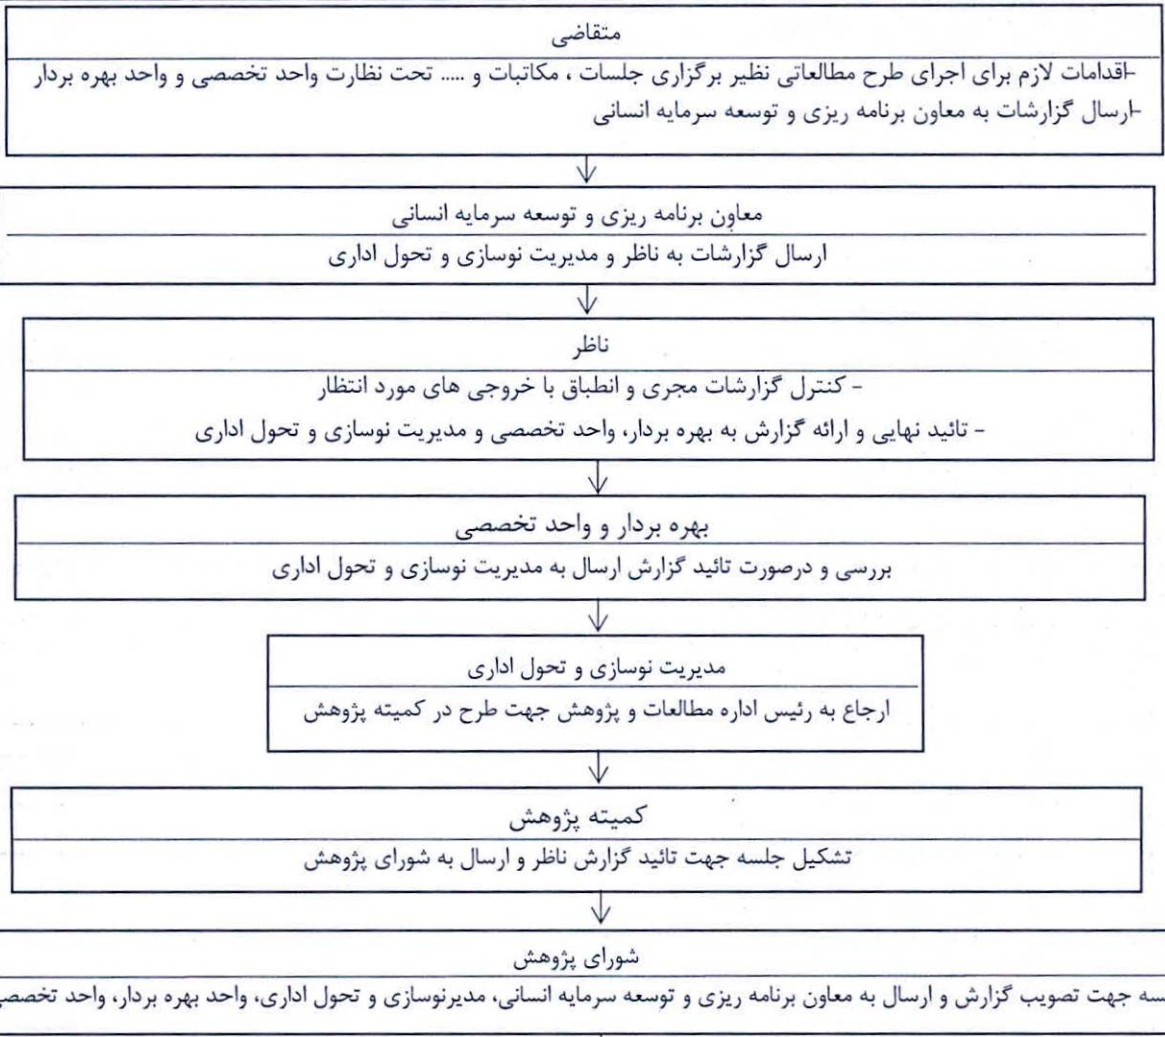 متقاضی
-اقدامات لازم برای اجرای طرح مطالعاتی نظیر برگزاری جلسات ، مکاتبات و ..... تحت نظارت واحد تخصصی و واحد بهره بردار
-ارسال گزارشات به معاون برنامه ریزی و توسعه سرمایه انسانی
معاون برنامه ریزی و توسعه سرمایه انسانی
ارسال گزارشات به ناظر و مدیریت نوسازی و تحول اداری
ناظر
- کنترل گزارشات مجری و انطباق با خروجی های مورد انتظار
- تائید نهایی و ارائه گزارش به بهره بردار، واحد تخصصی و مدیریت نوسازی و تحول اداری
بهره بردار و واحد تخصصی
بررسی و درصورت تائید گزارش ارسال به مدیریت نوسازی و تحول اداری
مدیریت نوسازی و تحول اداری
ارجاع به رئیس اداره مطالعات و پژوهش جهت طرح در کمیته پژوهش
کمیته پژوهش
تشکیل جلسه جهت تائید گزارش ناظر و ارسال به شورای پژوهش
شورای پژوهش
جهت تصویب گزارش و ارسال به معاون برنامه ریزی و توسعه سرمایه انسانی، مدیرنوسازی و تحول اداری، واحد بهره بردار، واحد تخصصی